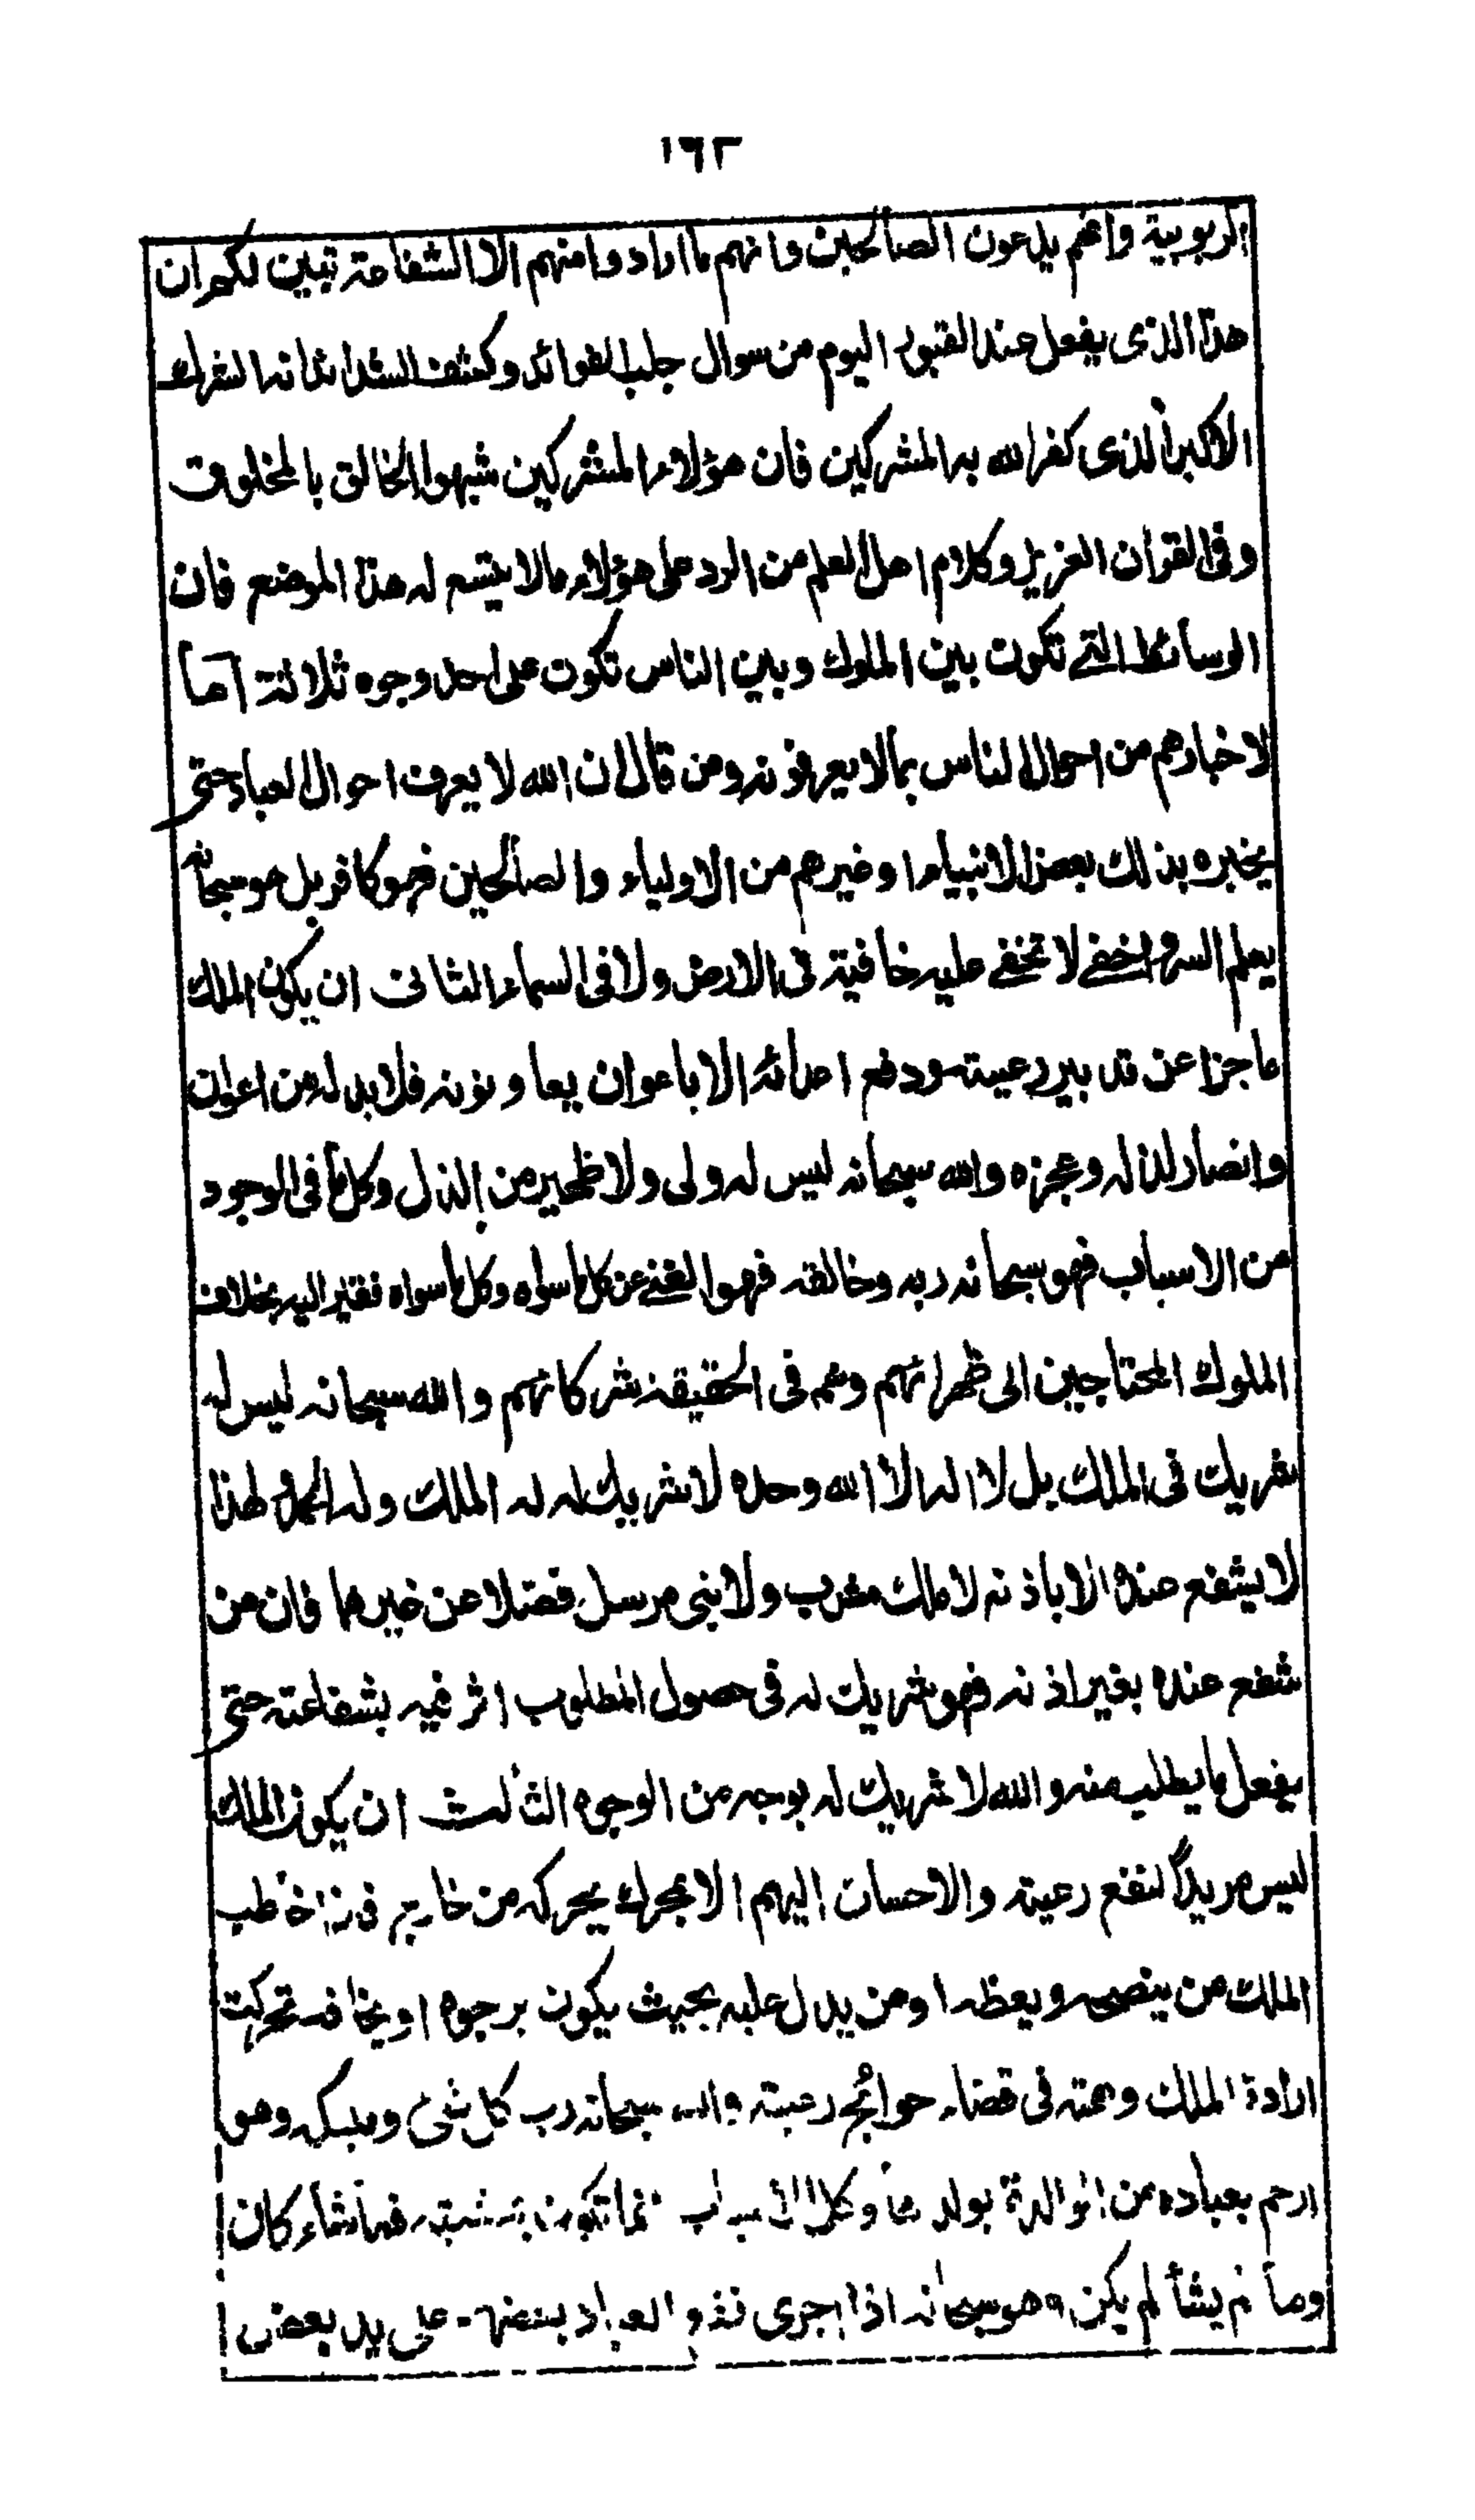 ١٦٢
الربوبية وانهم يدعون الصالحين وانهم ما ارادوا منهم الا الشفاعة تبين لكم ان
هذا الذى يفعل عند القبور اليوم من سوال جلب الفوائد وكشف الشدائد انه الشرك
الاكبر الذى كفر الله به المشركين فان هؤلاء المشركين شبهوا الخالق بالمخلوق
وفى القرآن العزيز وكلام اهل العلم من الرد على هؤلاء ما لا يتسع له هذا الموضع فان
الوسائط التى تكون بين الملوك وبين الناس تكون على احد وجوه ثلاثة اما
لاخبارهم من احوال الناس بما لا يعرفونه ومن قال ان الله لا يعرف احوال العباد حتى
يخبره بذلك بعض الانبياء او غيرهم من الاولياء والصالحين فهو كافر بل هو سبحانه
يعلم السر واخفى لا تخفى عليه خافية فى الارض ولا فى السماء الثانى ان يكون الملك
عاجزا عن تدبير رعيته ودفع اعدائه الا باعوان يعاونونه فلا بد له من اعوان
وانصار لذله وعجزه والله سبحانه ليس له ولى ولا ظهير من الذل وكل ما فى الوجود
من الاسباب فهو سبحانه ربه وخالقه فهو الغنى عن كل ما سواه وكل ما سواه فقير اليه بخلاف
الملوك المحتاجين الى ظهرائهم وهم فى الحقيقة شركائهم والله سبحانه ليس له
شريك فى الملك بل لا اله الا الله وحده لا شريك له له الملك وله الحمد ولهذا
لا يشفع عنده الا باذنه لا ملك مقرب ولا نبى مرسل فضلا عن غيرهما فان من
شفع عنده بغير اذنه فهو شريك له فى حصول المطلوب اثر فيه بشفاعته حتى
يفعل ما يطلب منه والله لا شريك له بوجه من الوجوه الثالث ان يكون الملك
ليس مريدا لنفع رعيته والاحسان اليهم الا بمحرك يحركه من خارج فاذا خاطب
الملك من ينصحه ويعظه او من يدل عليه بحيث يكون يرجوه او يخافه تحركت
ارادة الملك وهمته فى قضاء حوائج رعيته والله سبحانه رب كل شئ ومليكه وهو
ارحم بعباده من الوالدة بولدها وكل الاسباب انما تكون بمشيته فما شاء كان
وما لم يشأ لم يكن وهو سبحانه اذا اجرى نفع العباد بعضهم على يد بعض